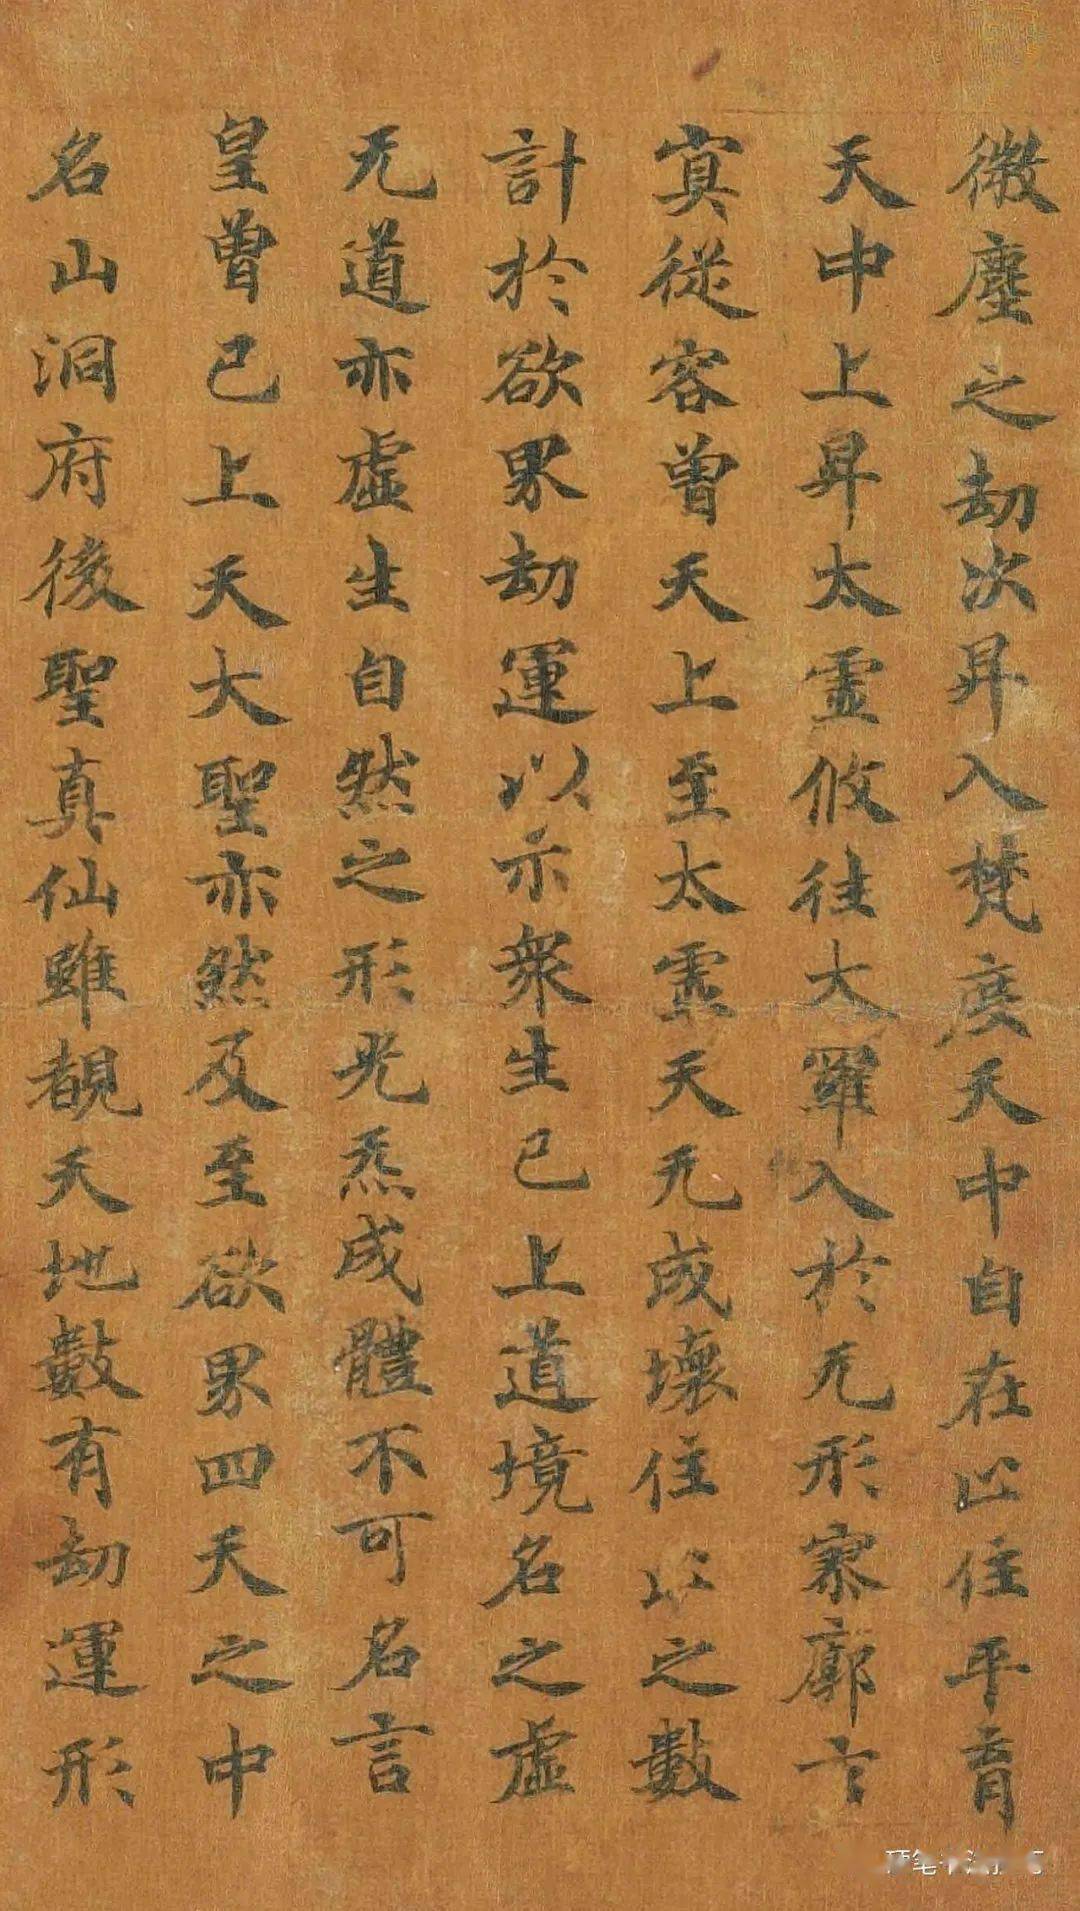 微塵之劫次昇入梵度天中自在以住平育
天中上昇太靈攸往大羅入於无形寥廓亡
寘從容曾天上至太靈天无成壞住以之數
計於欲界劫運以示衆生已上道境名之虛
无道亦虛生自然之形光炁成體不可名言
皇曾已上天大聖亦然及至欲界四天之中
名山洞府後聖真仙雖覩天地數有劫運形